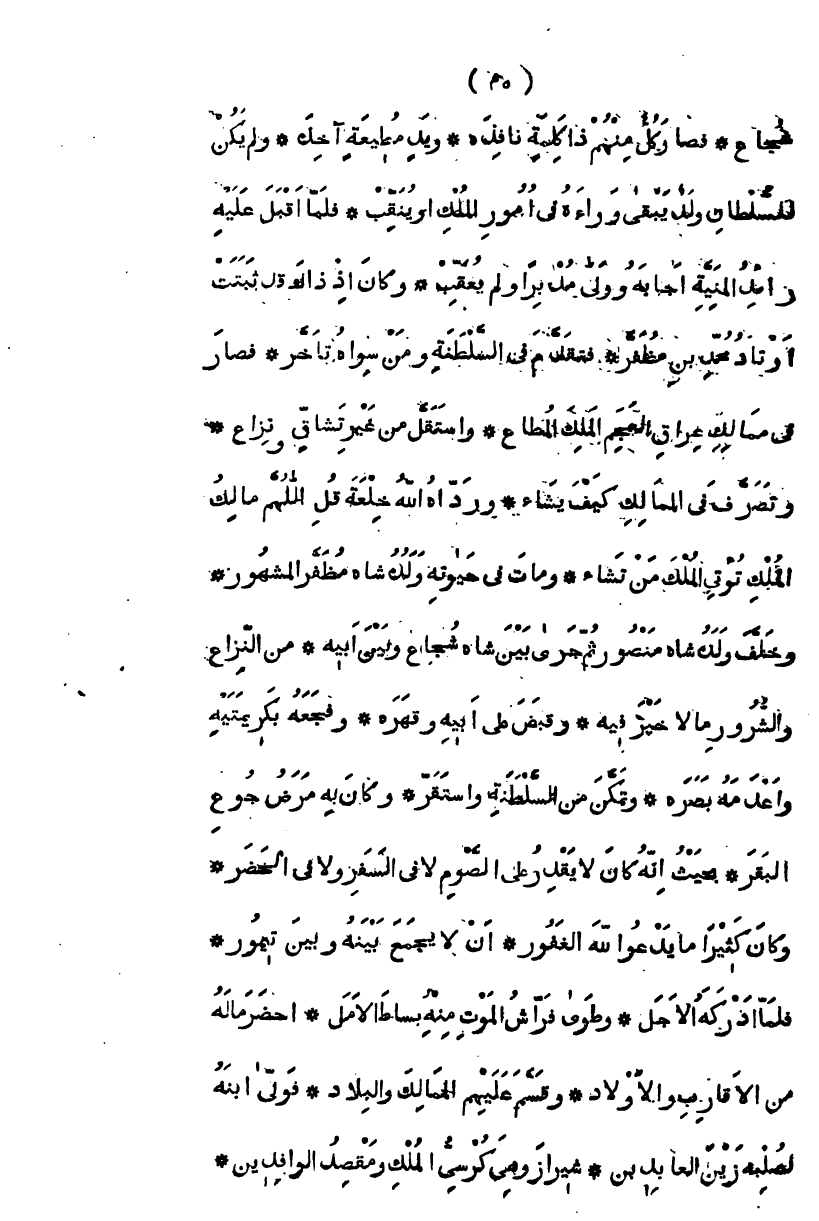 ( ٣٥ )
شجاع * فصار كُلٌّ مِنْهُمْ ذا كَلِمَةٍ نافِذَه * ويَدٍ مُطِيعَةٍ آخِذَه * ولم يَكُنْ
للسُّلْطانِ وَلَدٌ يَبْقىٰ وَراءَهُ فى اُمورِ المُلْكِ او يُنَقِّبْ * فلَمّا اَقْبَلَ عَلَيْهِ
رائدُ المَنِيَّةِ اَجابَهُ ووَلّىٰ مُدْبِرًا ولم يُعَقِّبْ * وكانَ اِذْ ذاكَ قد ثَبَتَتْ
اَوْتادُ محمّدِ بنِ مُظَفَّر * فتقَدَّمَ فى السَّلْطَنَةِ ومَنْ سِواهُ تأخَّر * فصارَ
فى ممَالِكِ عِراقِ العَجَمِ المَلِكَ المُطاع * واستَقَلَّ من غَيْرِ تَشاقٍّ ونِزاع *
وتَصَرَّفَ فى الممَالِكِ كَيْفَ يَشَاء * ورَدّاهُ اللّٰهُ خِلْعَةَ قُلِ اللّٰهُمَّ مالِكَ
المُلْكِ تُؤْتِى المُلْكَ مَنْ تَشاء * وماتَ فى حَيٰوتِهِ وَلَدُهُ شاه مُظَفَّر المشهُور *
وخَلَّفَ وَلَدَهُ شاه مَنْصُور ثُمّ جَرىٰ بَيْنَ شاه شُجاع وبَيْنَ اَبِيه * من النِّزاع
والشُّرُورِ ما لا خَيْرَ فِيه * وقبَضَ على اَبِيهِ وقهَرَه * وفجَعَهُ بكَرِيمَتَيْهِ
واَعْدَمَهُ بَصَرَه * وتمَكَّنَ من السَّلْطَنَةِ واستَقَرّ * وكانَ بِهِ مَرَضُ جُوعِ
البَقَر * بحيَثُ اِنّهُ كانَ لا يَقْدِرُ على الصَّوْمِ لا فى السَّفَرِ ولا فى الحَضَر *
وكانَ كَثِيْرًا ما يَدْعُوا للّٰهَ الغَفُور * اَنْ لا يجمَعَ بَيْنَهُ وبينَ تِيمُور *
فلمَّا اَدْرَكَهُ الاَجَل * وطَوىٰ فَرّاشُ المَوْتِ مِنْهُ بِساطَ الاَمَل * احضَرَ مالَهُ
من الاَقارِبِ والاَوْلاد * وقسَّمَ عَلَيْهِم الممَالِكَ والبِلاد * فوَلّىٰ ابنَهُ
لصُلْبِهِ زَيْنَ العابِدِين * شِيرازَ وهِىَ كُرْسِىُّ المُلْكِ ومَقْصِدُ الوافِدِين *